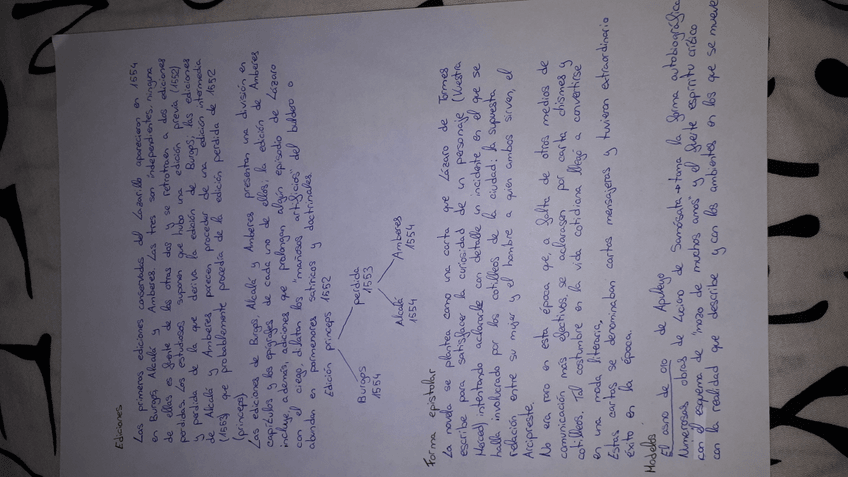 Ediciones
Las primeras ediciones conservadas del Lazarillo aparecieron en 1554
en Burgos, Alcalá y Amberes. Las tres son independientes, ninguna
de ellas es fuente de las otras dos y se retrotraen a dos ediciones
perdidas. Los estudiosos, suponen que hubo una edición previa (1552)
y perdida de la que deriva la edición de Burgos, las ediciones
de Alcalá y Amberes parecen proceder de una edición intermedia
(1553) que probablemente procedía de la edición perdida de 1552
(princeps)
Las ediciones de Burgos, Alcalá y Amberes presentan una división en
capítulos y los epígrafes de cada uno de ellos, la edición de Amberes
incluye además, adiciones que prolongan algún episodio de Lázaro
con el ciego, dilatan los "mañosos artificios" del buldero o
abundan en pormenores satíricos y doctrinales
Edición princeps 1552
Burgos
1554
perdida
1553
Alcalá
1554
Amberes
1554
Forma epistolar
La novela se plantea como una carta que Lázaro de Tormes
escribe para satisfacer la curiosidad de un personaje (Vuestra
Merced) intentando aclararle con detalle un incidente en el que se
halla involucrado por los cotilleos de la ciudad: la supuesta
relación entre su mujer y el hombre a quien ambos sirven, el
Arcipreste.
No era raro en esta época que, a falta de otros medios de
comunicación más efectivos, se aclarasen por carta chismes y
cotilleos. Tal costumbre en la vida cotidiana llegó a convertirse
en una moda literaria.
Estas cartas se denominaban cartas mensajeras y tuvieron extraordinario
éxito en la época.
Modelos
El asno de oro de Apuleyo
Numerosas obras de Luciano de Samósata → toma la forma autobiográfica
con el esquema de "mozo de muchos amos" y el fuerte espíritu crítico
con la realidad que describe y con los ambientes en los que se mueve